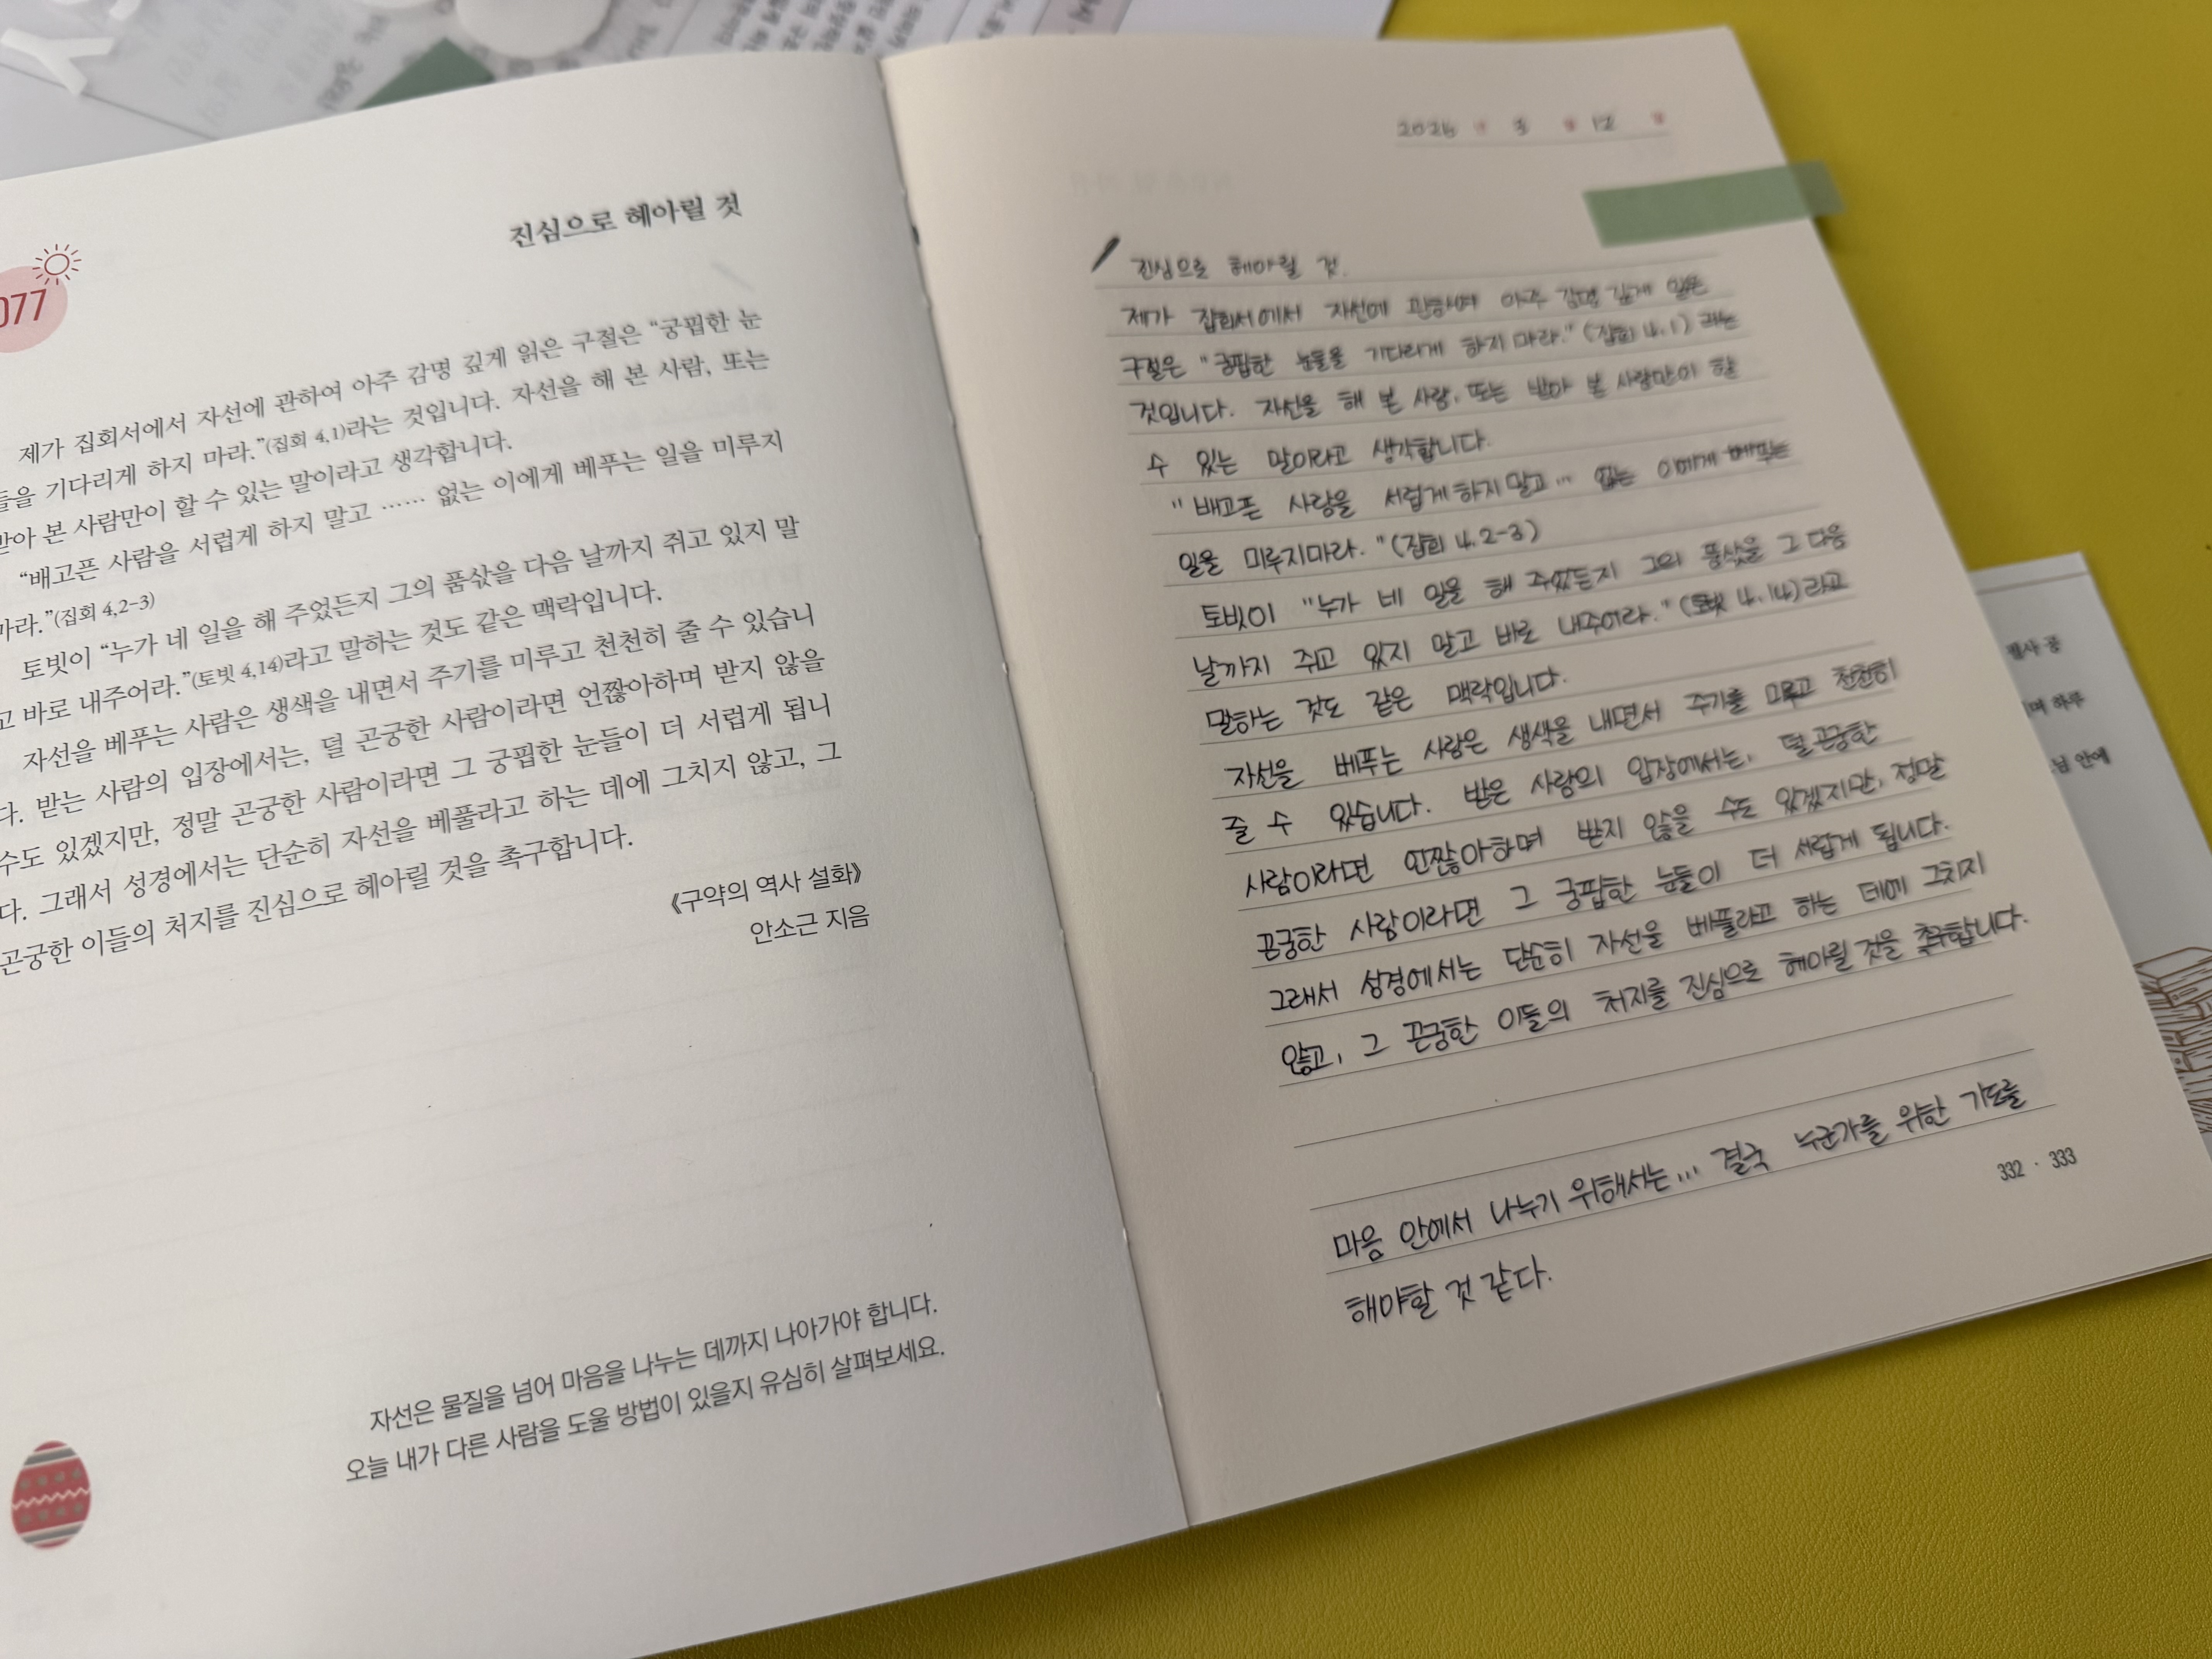 077
진심으로 헤아릴 것
제가 집회서에서 자선에 관하여 아주 감명 깊게 읽은 구절은 “궁핍한 눈
들을 기다리게 하지 마라.”(집회 4,1)라는 것입니다. 자선을 해 본 사람, 또는
받아 본 사람만이 할 수 있는 말이라고 생각합니다.
“배고픈 사람을 서럽게 하지 말고 …… 없는 이에게 베푸는 일을 미루지
마라.”(집회 4,2-3)
토빗이 “누가 네 일을 해 주었든지 그의 품삯을 다음 날까지 쥐고 있지 말
고 바로 내주어라.”(토빗 4,14)라고 말하는 것도 같은 맥락입니다.
자선을 베푸는 사람은 생색을 내면서 주기를 미루고 천천히 줄 수 있습니
다. 받는 사람의 입장에서는, 덜 곤궁한 사람이라면 언짢아하며 받지 않을
수도 있겠지만, 정말 곤궁한 사람이라면 그 궁핍한 눈들이 더 서럽게 됩니
다. 그래서 성경에서는 단순히 자선을 베풀라고 하는 데에 그치지 않고, 그
곤궁한 이들의 처지를 진심으로 헤아릴 것을 촉구합니다.
《구약의 역사 설화》
안소근 지음
자선은 물질을 넘어 마음을 나누는 데까지 나아가야 합니다.
오늘 내가 다른 사람을 도울 방법이 있을지 유심히 살펴보세요.
2026 년 3 월 12 일
진심으로 헤아릴 것.
제가 집회서에서 자선에 관하여 아주 감명 깊게 읽은
구절은 "궁핍한 눈들을 기다리게 하지 마라." (집회 4.1) 라는
것입니다. 자선을 해 본 사람, 또는 받아 본 사람만이 할
수 있는 말이라고 생각합니다.
"배고픈 사람을 서럽게 하지 말고… 없는 이에게 베푸는
일을 미루지마라." (집회 4.2-3)
토빗이 "누가 네 일을 해 주었든지 그의 품삯을 그 다음
날까지 쥐고 있지 말고 바로 내주어라." (토빗 4.14)라고
말하는 것도 같은 맥락입니다.
자선을 베푸는 사람은 생색을 내면서 주기를 미루고 천천히
줄 수 있습니다. 받은 사람의 입장에서는, 덜 곤궁한
사람이라면 언짢아하며 받지 않을 수도 있겠지만, 정말
곤궁한 사람이라면 그 궁핍한 눈들이 더 서럽게 됩니다.
그래서 성경에서는 단순히 자선을 베풀라고 하는 데에 그치지
않고, 그 곤궁한 이들의 처지를 진심으로 헤아릴 것을 촉구합니다.
마음 안에서 나누기 위해서는... 결국 누군가를 위한 기도를
해야할 것 같다.
332 · 333
필사 공
며 하루
님 안에